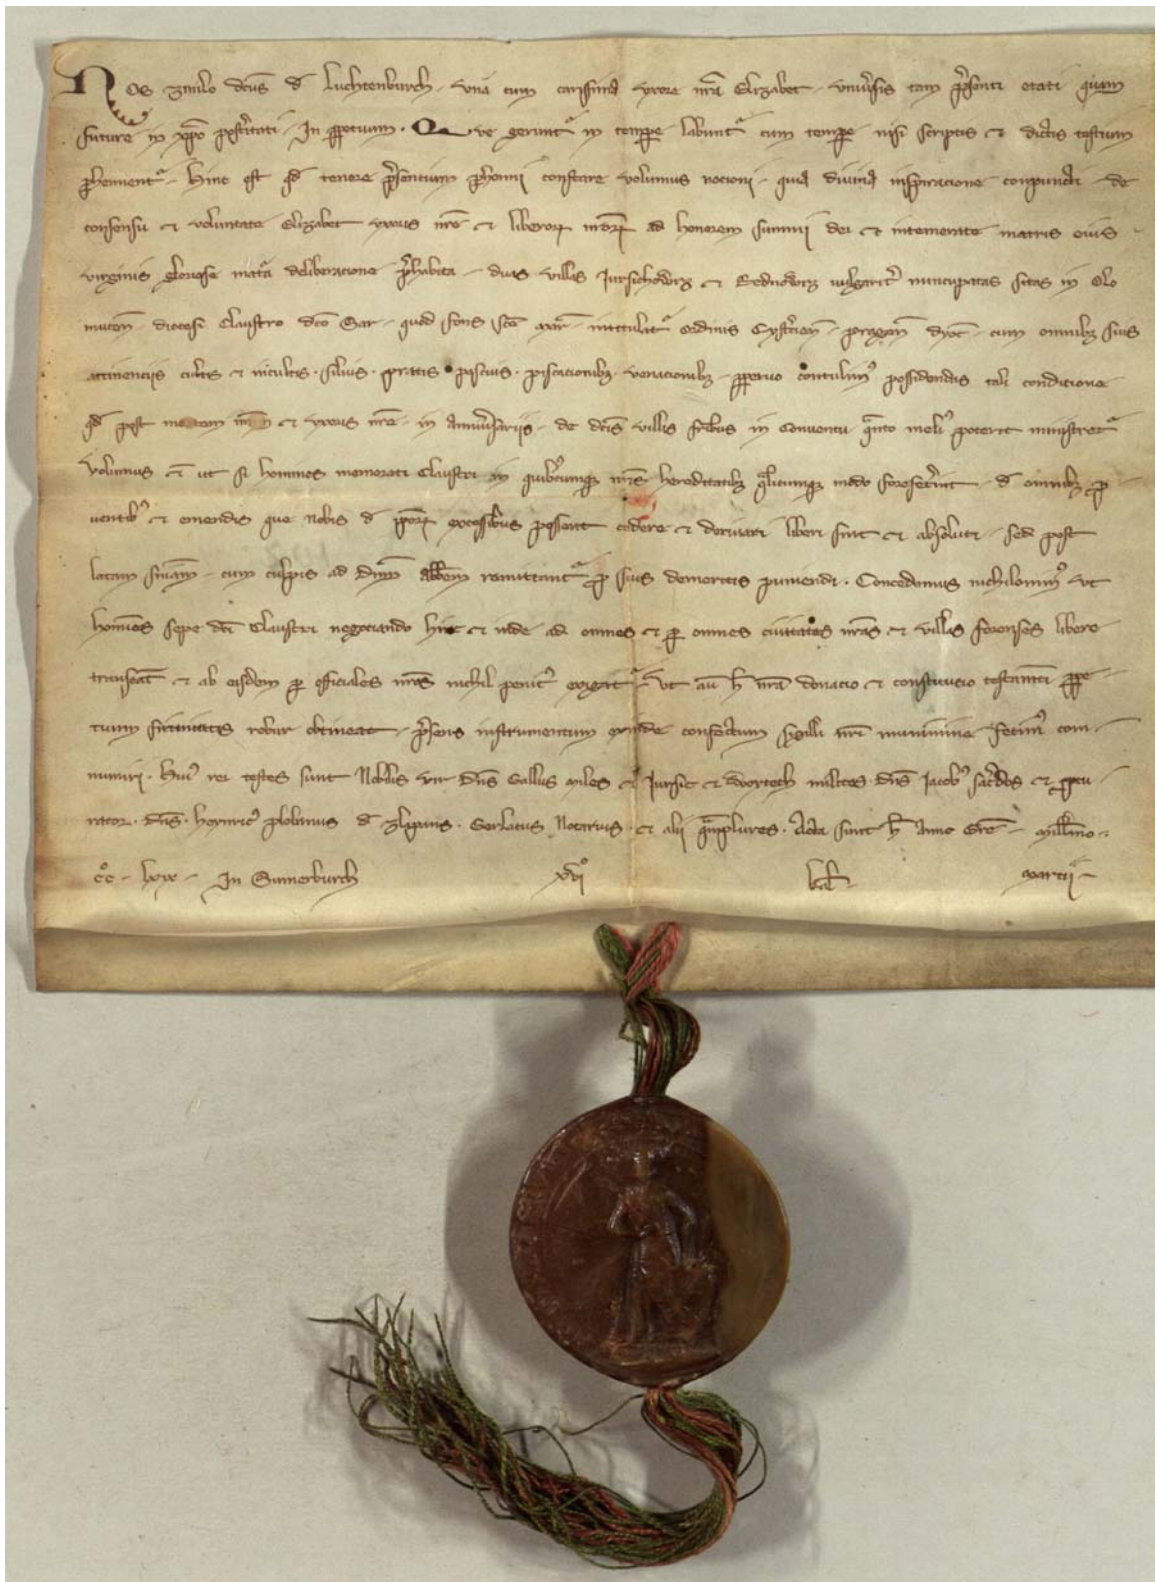 Nos zmilo dcūs d̄ Luchtenburch . vna cum carissima vxore nrā Elizabet . vniuˀsis tam pˀsenti etati quam
future in xp̄o postˀitati . In ꝑpetuum . Que gerūtˀ in temp̄e labuntˀ cum temp̄e nisi scriptis et dictis testium
pˀhennentˀ . hinc est qđ tenore pˀsentium pˀhenni constare volumus nocioni . quia diuina inspiracione conpuncti de
consensu et voluntate Elizabet vxoris nrē et liberoꝝ nrōꝝ ad honorem summi dei et intemerate matris eius
virginis gloriose matˀa deliberacione pˀhabita . duas villas Jursichowiz et Rednowiz vulgaritˀ nuncupatas sitas in Olo
mucen̄ . diocesi Claustro dc̄o Sar . quod fons sc̄e mar̄ . intitulatˀ ordinis Cystˀcien̄ . pragen̄ dyoc̄ . cum omnibꝫ suis
attinenciis cultis et incultis . siluis . pratis pascuis . piscacionibꝫ . venacionibꝫ . ꝑpetuo contulimꝰ possidendas tali condicione
qđ post mortem nrām et vxoris nrē . in Anniuˀsariis . de dc̄is villis frībus in Conuentu q̄nto meliꝰ poterit ministretˀ
Volumus ec̄ ut si homines memorati Claustri in quibꝰcumqꝫ nrīs hereditatibꝫ q̄litcumqꝫ modo forefecˀint . d̄ omnibꝫ ꝓ
uentibꝰ et emendis que nobis d̄ ip̄oꝝ excessibus possent cedere et deriuari liberi sint et absoluti . sed post
latam sniām . cum culpis ad Dnm̄ abb̄em remittantˀ ꝓ suis demeritis puniendi . Concedimus nichilominꝰ vt
homines sepe dc̄i Claustri negociando hinc et inde ad omnes et ꝑ omnes ciuitates nrās et villas forenses libere
transeāt et ab eisdem ꝑ officiales nrōs nichil penitꝰ exigatˀ . Vt au᷑ h̄ nrā donacio et constitucio testam̄ti ꝑpe
tuum firmitatis robur obtineat . pˀsens instrumentum exinde confectum sigilli nrī munimine fecimꝰ com
muniri . Huiꝰ rei testes sunt Nobilis vir Dn̄s Gallus miles et Jursic et Woytech milites . Dn̄s Jacobꝰ sacˀdos et ꝓcu
rator . Dn̄s . heynricꝰ plebanus d̄ zlapans . Gerlacus Notarius . et alij q̄mplures . Acta sunt h̄ Anno Grē . Mill̄mo .
c̊c̊ . lxix . In Sumerburch xvi̊ kal̄ . Marcij